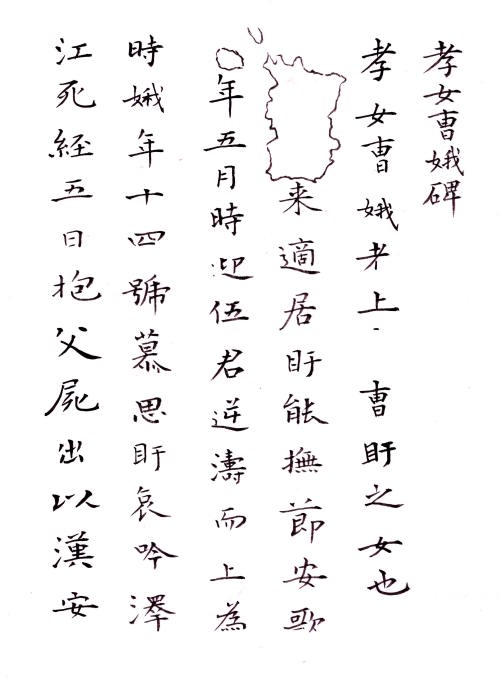 孝女曹娥碑
孝女曹娥者上 曹盱之女也
来適居盱能撫節安歌
年五月時迎伍君逆濤而上為
時娥年十四號慕思盱哀吟澤
江死經五日抱父屍出以漢安